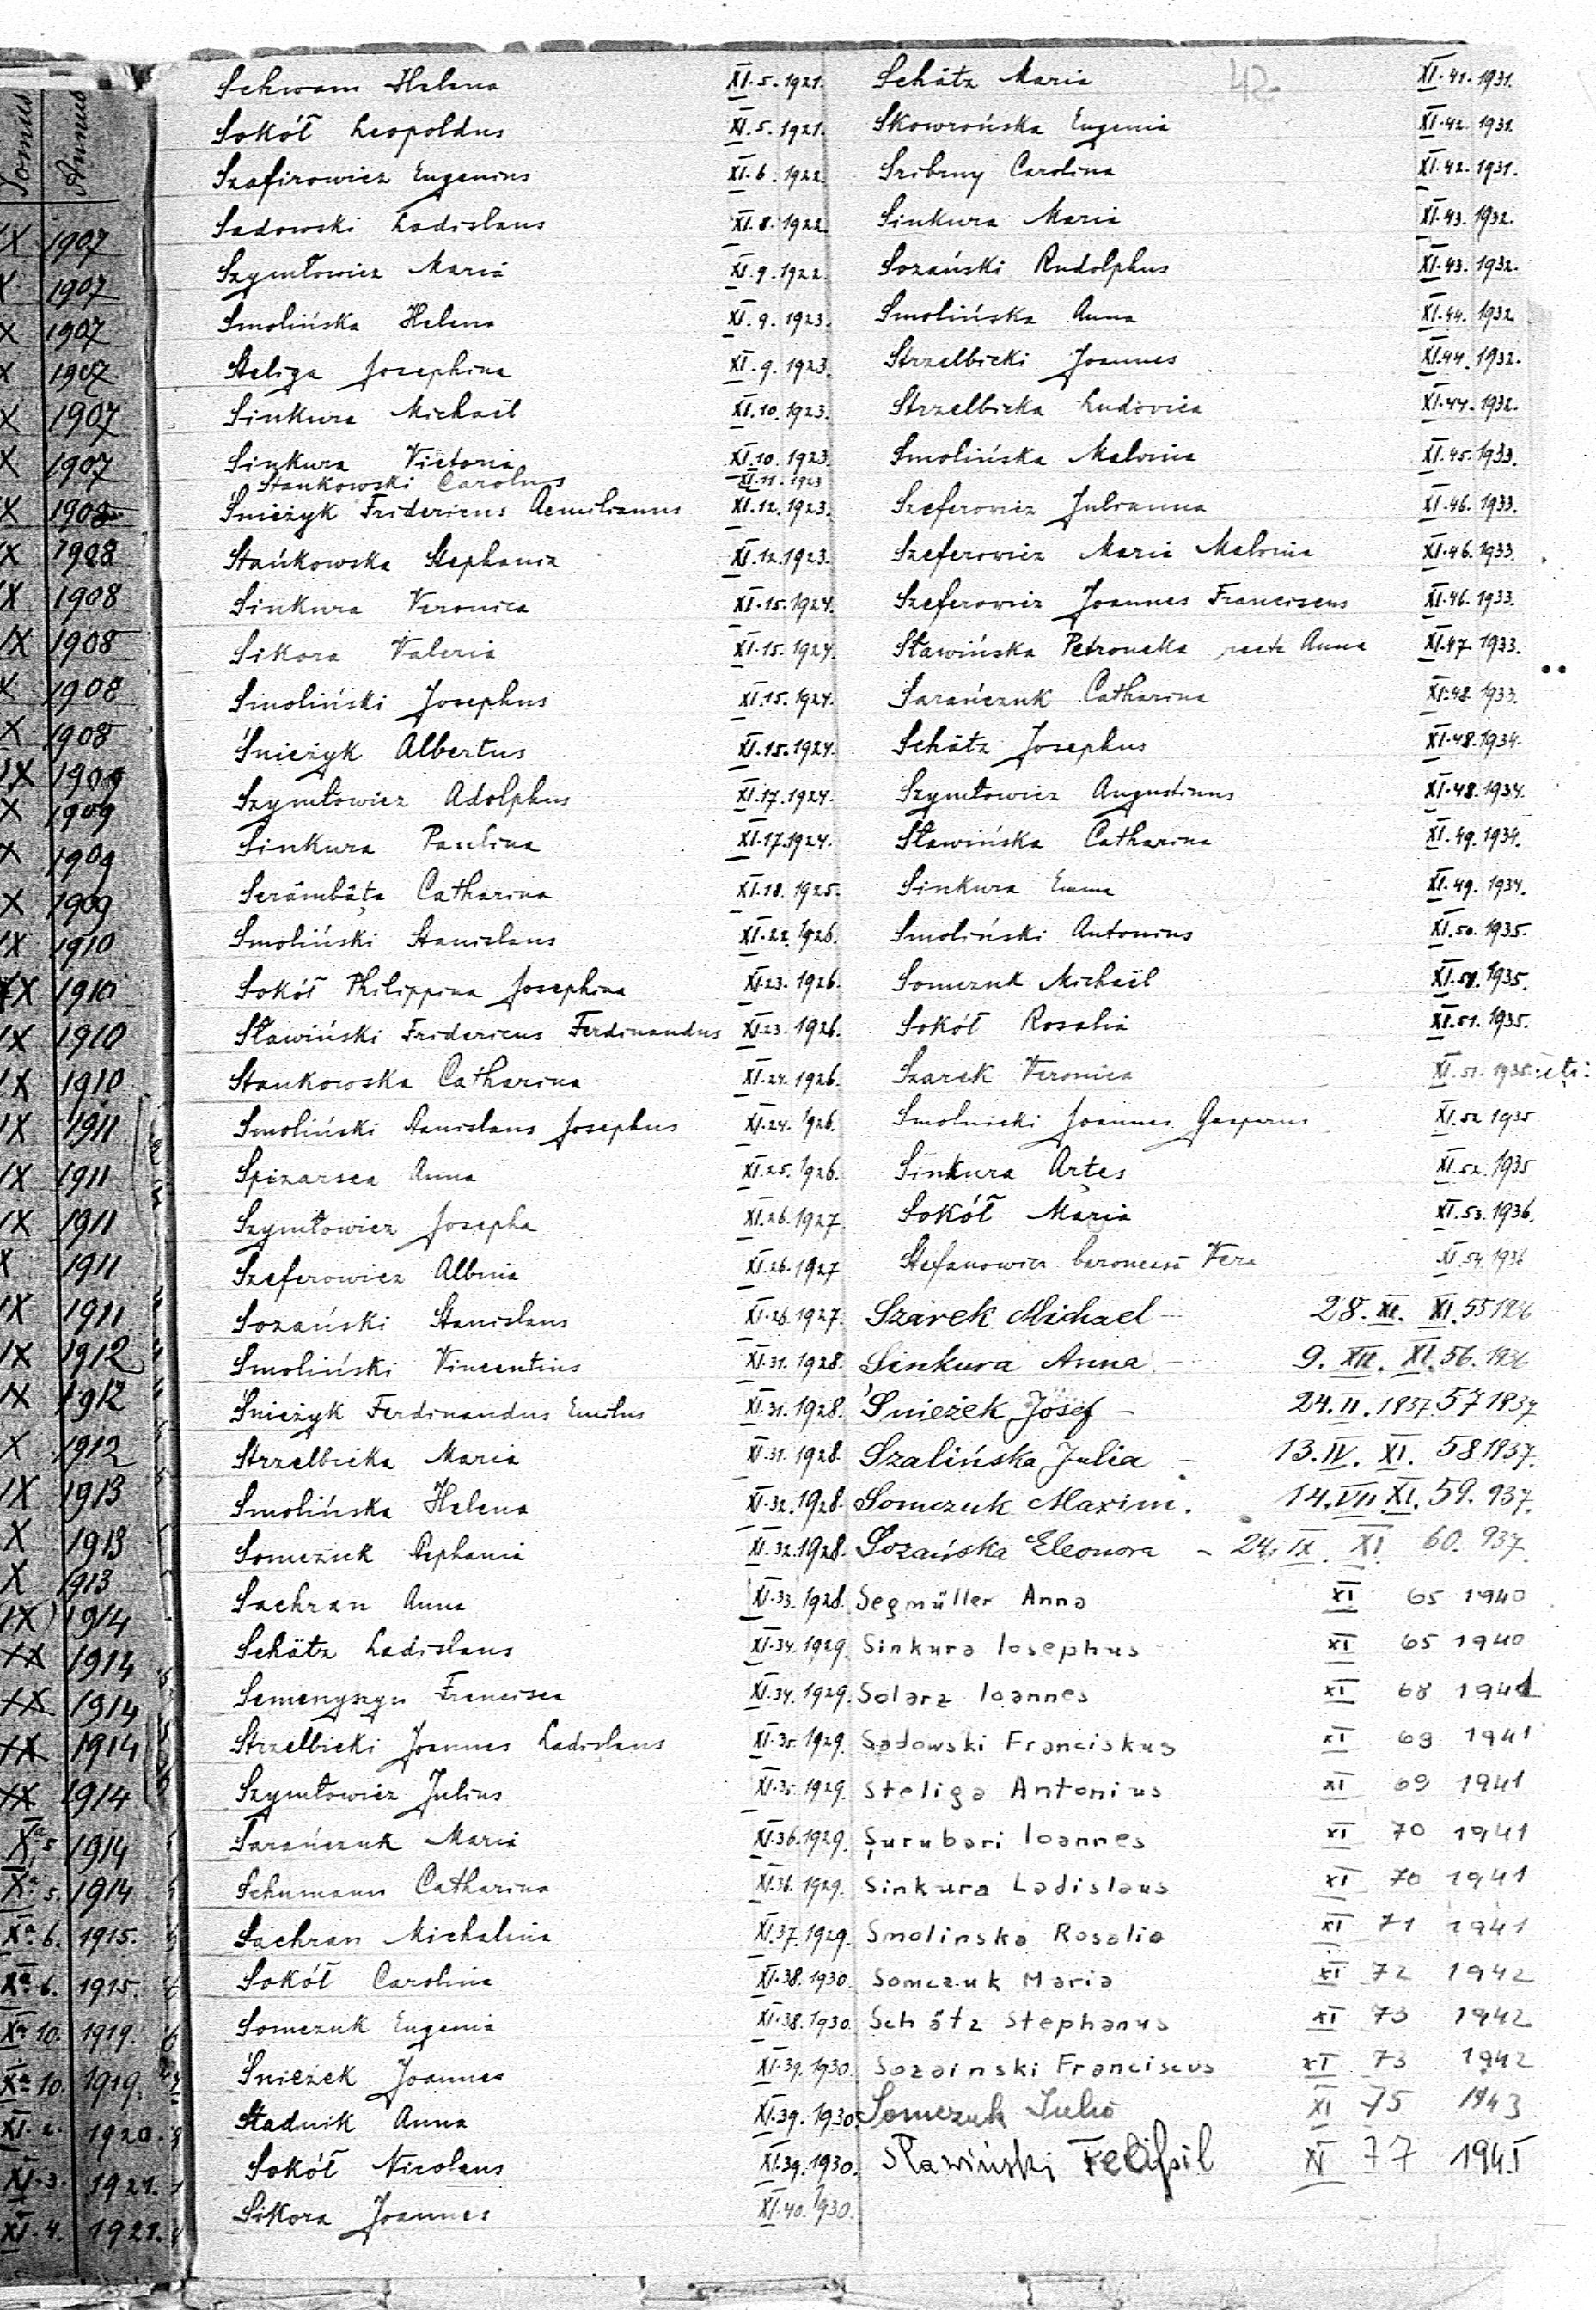 Tomus Annus
IX 1907
X 1907
X 1907
X 1907
X 1907
X 1907
X 1908
IX 1908
IX 1908
IX 1908
X 1908
X 1908
IX 1909
X 1909
X 1909
X 1909
IX 1910
IX 1910
IX 1910
IX 1910
IX 1911
IX 1911
IX 1911
X 1911
IX 1911
IX 1912
IX 1912
X 1912
IX 1913
X 1913
X 1913
(IX) 1914
XX 1914
XX 1914
XX 1914
XX 1914
Xª 5 1914
Xª 5. 1914
Xª 6. 1915.
Xª 6. 1915.
Xª 10. 1919.
Xª 10. 1919.
XI. 2. 1920.
XI. 3. 1921.
XI. 4. 1921.
Schwam Helena XI. 5. 1921.
Sokół Leopoldus XI. 5. 1921.
Szafirowicz Eugenius XI. 6. 1922.
Sadowski Ladislaus XI. 8. 1922.
Szymłowicz Maria XI. 9. 1922.
Smolińska Helena XI. 9. 1923.
Steliga Josephina XI. 9. 1923.
Sinkura Michaël XI. 10. 1923.
Sinkura Victoria XI. 10. 1923.
Stankowski Carolus XI. 11. 1923
Śnieżyk Fridericus Aemilianus XI. 12. 1923.
Stańkowska Stephania XI. 12. 1923.
Sinkura Veronica XI. 15. 1924.
Sikora Valeria XI. 15. 1924.
Smoliński Josephus XI. 15. 1924.
Śnieżyk Albertus XI. 15. 1924.
Szymłowicz Adolphus XI. 17. 1924.
Sinkura Paulina XI. 17. 1924.
Serâmbăţa Catharina XI. 18. 1925.
Smoliński Stanislaus XI. 22. 1926.
Sokół Philippina Josephina XI. 23. 1926.
Sławiński Fridericus Ferdinandus XI. 23. 1926.
Stankowska Catharina XI. 24. 1926.
Smoliński Stanislaus Josephus XI. 24. 1926.
Spizarsca Anna XI. 25. 1926.
Szymłowicz Josepha XI. 26. 1927
Szeferowicz Albina XI. 26. 1927
Sozański Stanislaus XI. 26. 1927.
Smoliński Vincentius XI. 31. 1928.
Śnieżyk Ferdinandus Emilus XI. 31. 1928.
Strzelbicka Maria XI. 31. 1928.
Smolińska Helena XI. 32. 1928.
Somczuk Stephania XI. 32. 1928.
Sachran Anna XI. 33. 1928.
Schätz Ladislaus XI. 34. 1929.
Semenyszyn Francisca XI. 34. 1929.
Strzelbicki Joannes Ladislaus XI. 35. 1929.
Szymłowicz Julius XI. 35. 1929.
Sarańczuk Maria XI. 36. 1929.
Schumann Catharina XI. 36. 1929.
Sachran Michalina XI. 37. 1929.
Sokół Carolina XI. 38. 1930.
Somczuk Eugenia XI. 38. 1930.
Śnieżek Joannes XI. 39. 1930.
Stadnik Anna XI. 39. 1930.
Sokół Nicolaus XI. 39. 1930.
Sikora Joannes XI. 40. 1930.
42.
Schätz Maria XI. 41. 1931.
Skowrońska Eugenia XI. 42. 1931.
Sribrny Carolina XI. 42. 1931.
Sinkura Maria XI. 43. 1932.
Sozański Rudolphus XI. 43. 1932.
Smolińska Anna XI. 44. 1932.
Strzelbicki Joannes XI. 44. 1932.
Strzelbicka Ludovica XI. 44. 1932.
Smolińska Malvina XI. 45. 1933.
Szeferowicz Julianna XI. 46. 1933.
Szeferowicz Maria Malvina XI. 46. 1933.
Szeferowicz Joannes Franciscus XI. 46. 1933.
Sławińska Petronella recte Anna XI. 47. 1933.
Sarańczuk Catharina XI. 48. 1933.
Schätz Josephus XI. 48. 1934.
Szymłowicz Augustinus XI. 48. 1934.
Sławińska Catharina XI. 49. 1934.
Sinkura Emma XI. 49. 1934.
Smoliński Antonius XI. 50. 1935.
Somczuk Michaël XI. 51. 1935.
Sokół Rosalia XI. 51. 1935.
Szarek Veronica XI. 51. 1935.
Smolnicki Joannes Gasparus XI. 52. 1935
Sinkura Artes XI. 52. 1935
Sokół Maria XI. 53. 1936.
Stefanowicz baronessa Vera XI. 54. 1936
Szarek Michael – 28. XI. XI. 55 1936
Sinkura Anna – 9. XII. XI. 56. 1936
Śnieżek Józef – 24. II. 1937. 57 1937
Szalińska Julia – 13. IV. XI. 58. 1937.
Somczuk Maxim. 14. VII XI. 59. 937.
Sozańska Eleonora – 24. IX. XI. 60. 937.
Segmüller Anna XI 65 1940
Sinkura Iosephus XI 65 1940
Solarz Ioannes XI 68 1941
Sadowski Franciskus XI 69 1941
Steliga Antonius XI 69 1941
Şurubari Ioannes XI 70 1941
Sinkura Ladislaus XI 70 1941
Smolinska Rosalia XI 71 1941
Somczuk Maria XI 72 1942
Schätz Stephanus XI 73 1942
Sozainski Franciscus XI 73 1942
Somczuk XI 75 1943
Sławiński XI 77 1945